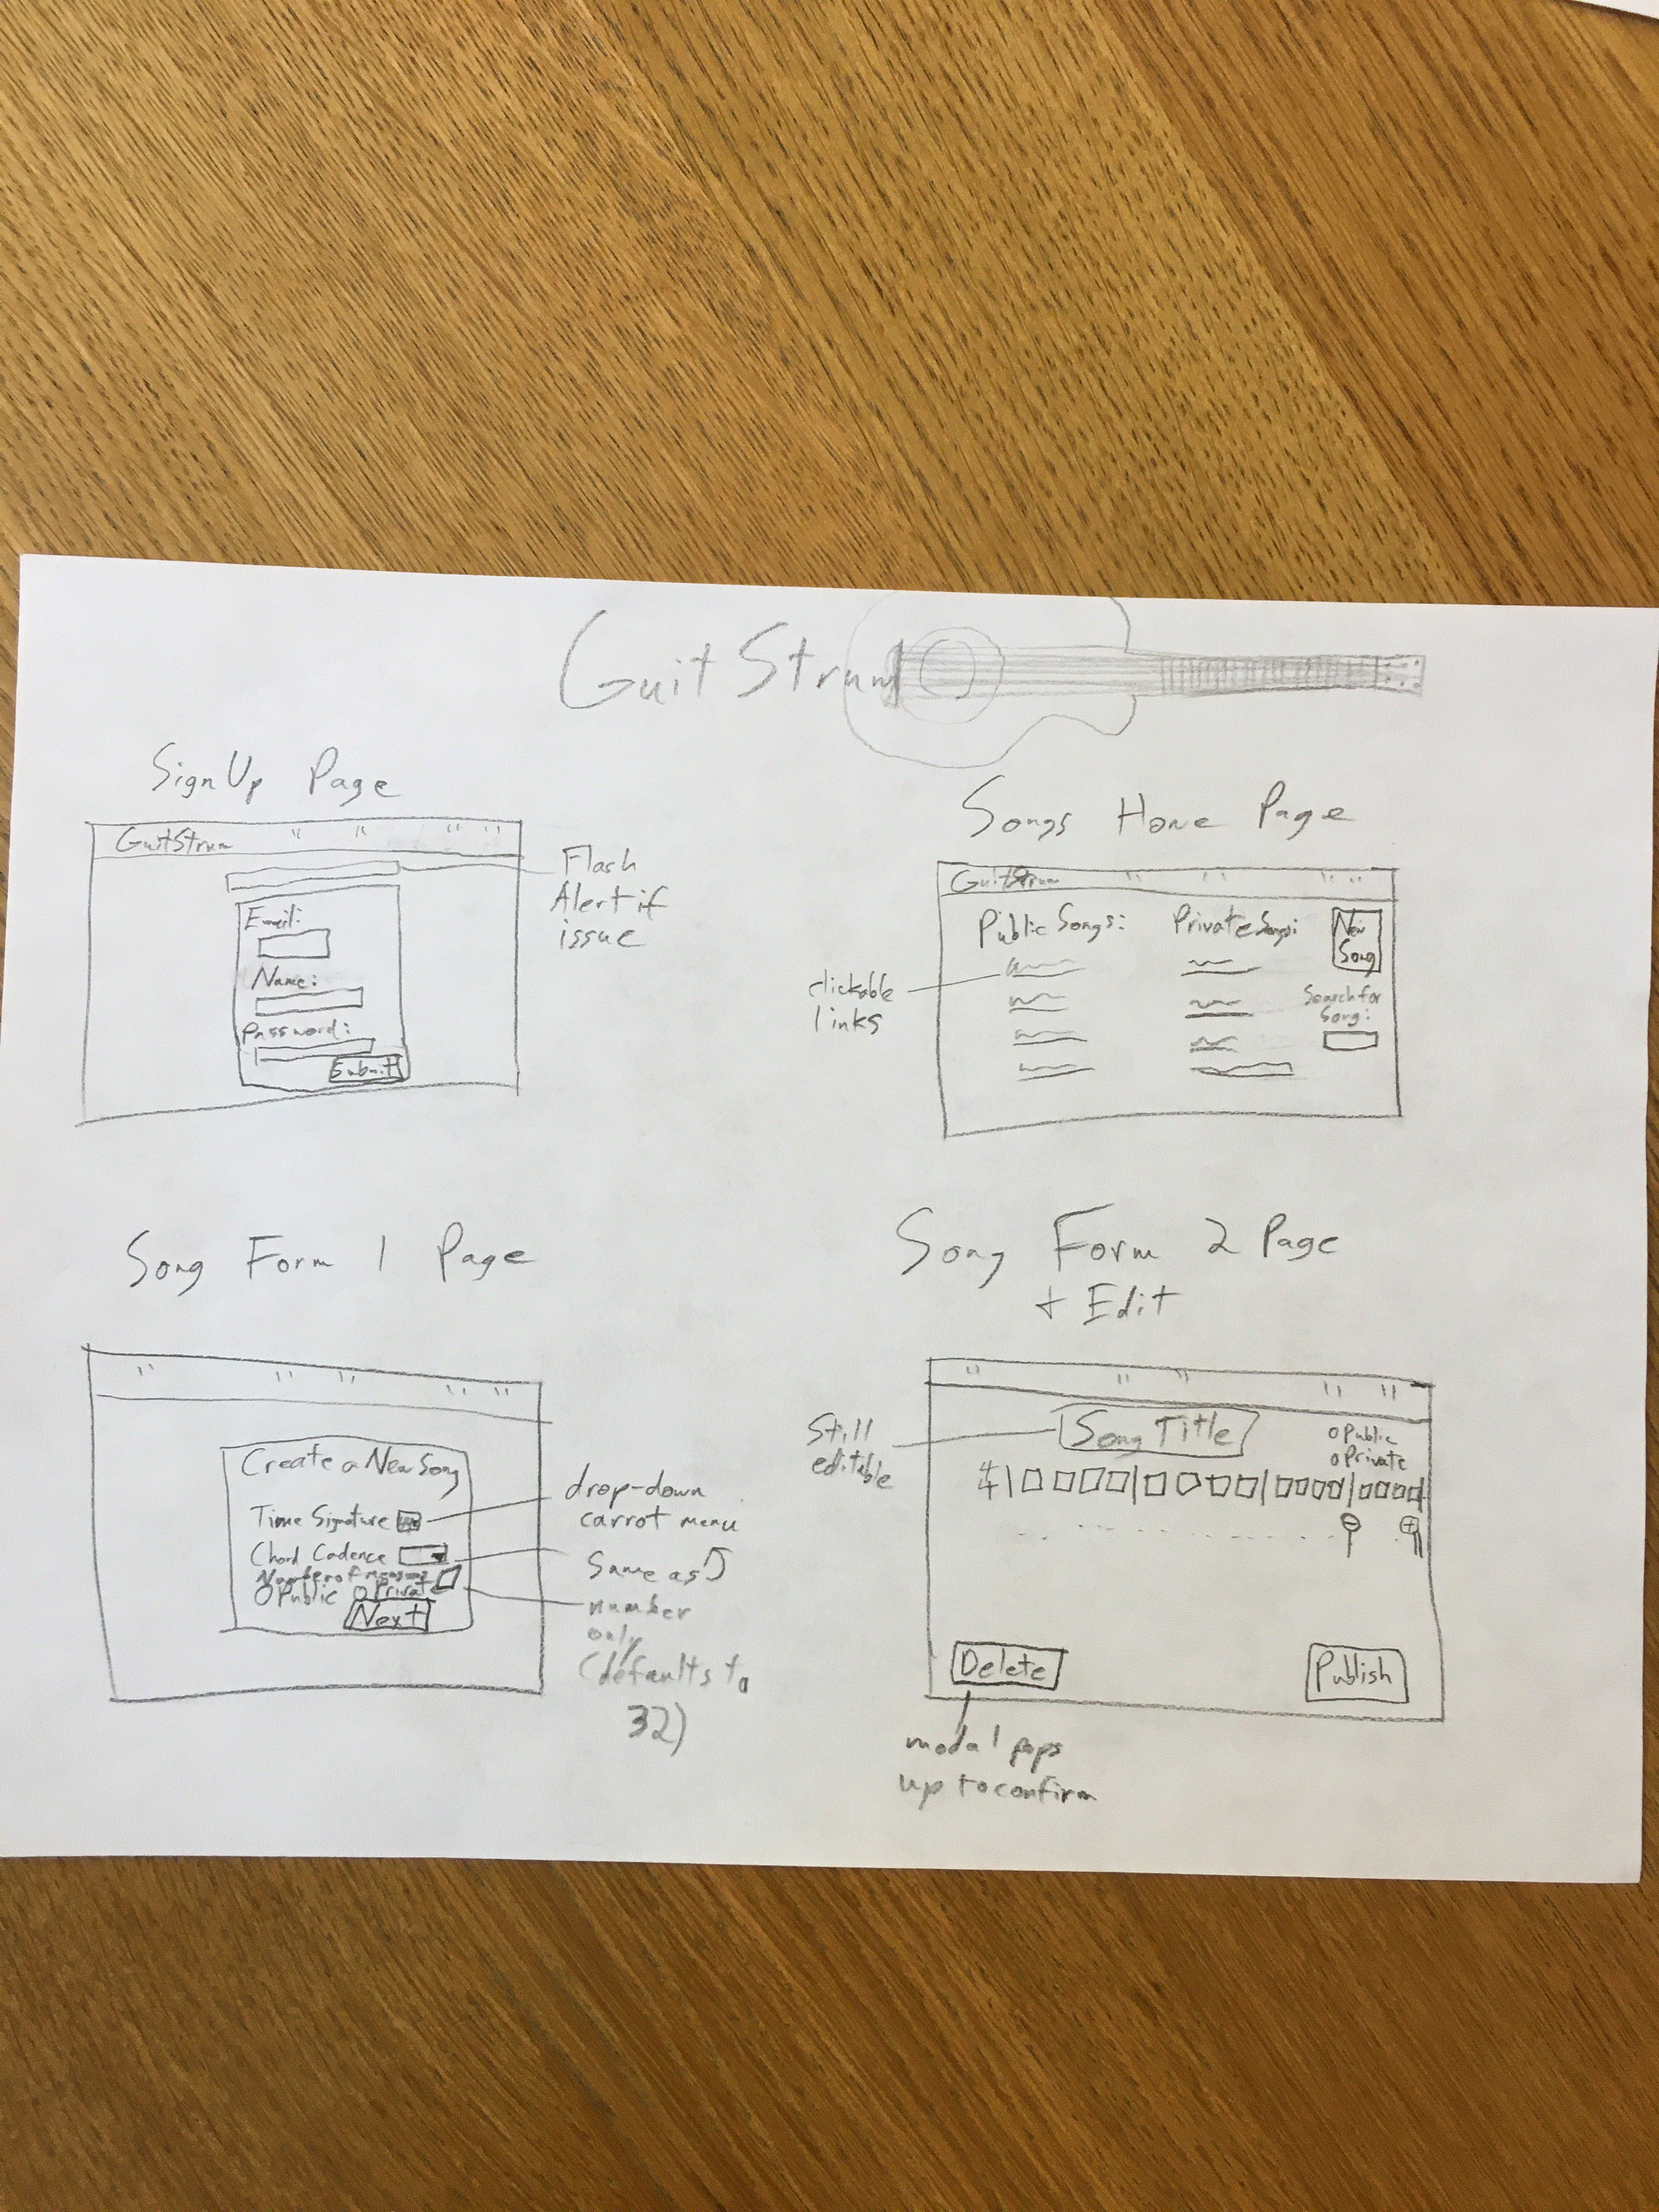 GuitStrum
SignUp Page
GuitStrum
Flash
Alert if
issue
Email:
Name:
Password:
Submit
Songs Home Page
GuitStrum
Public Songs:
Private Songs:
New
Song
Search for
Song:
clickable
links
Song Form 1 Page
Create a New Song
Time Signature
Chord Cadence
Number of measures
Public Private
Next
drop-down
carrot menu
Same as
number
only
(defaults to
32)
Song Form 2 Page
+ Edit
Still
editable
Song Title
Public
Private
4
4
Delete
Publish
modal pops
up to confirm